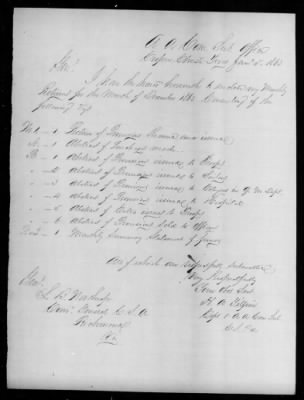 A. A. Com. Sub. Office
Corpus Christi Texas Jany 5th 1863
Sir,
I have the honor herewith to enclose my Monthly
Returns for the Month of December 1862, Consisting of the
following Viz
No 1 Return of Provisions Received and issued
A 1 Abstract of Purchases made
B 1 Abstract of Provisions issued to Troops
2 Abstract of Provisions issued to
3 Abstract of Provisions issued to in Q. M. Dept.
4 Abstract of Provisions issued to Hospital
5 Abstract of Extra issues to Troops
6 Abstract of Provisions Sold to Officers
1 Monthly Summary Statement of
All of which are respectfully submitted
Very Respectfully
Your Obt Servt
H. A.
Capt & A. A. Com Sub
C. S. A.
Genl
L. B. Northrop
Com. General C. S. A.
Richmond
Va